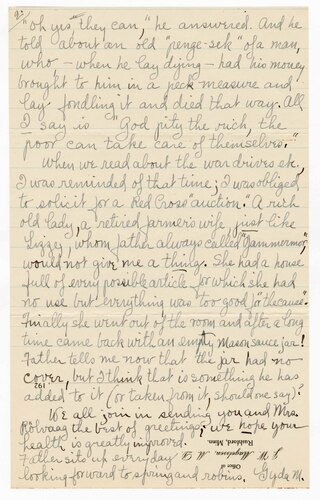 "Oh yes they can," he answered. And he
told about an old "penge-sek" of a man,
who – when he lay dying – had his money
brought to him in a peck measure and
lay fondling it and died that way. All
I say is "God pity the rich, the
poor can take care of themselves."
When we read about the war drives etc.
I was reminded of that time; I was obliged
to solicit for a Red Cross auction. A rich
old lady, a retired farmer's wife, just like
Lizzy, whom father always called "Gammormor,"
would not give me a thing. She had a house
full of every possible article for which she had
no use but everything was too good for "the cause."
Finally she went out of the room and after a long
time came back with an empty Mason sauce jar!
Father tells me now that the jar had no
cover, but I think that is something he has
added to it (or taken from it, should one say)?
192
We all join in sending you and Mrs.
Rolvaag the best of greetings; we hope your
health is greatly improved.
Father sits up everyday
looking forward to spring and robins. Gyda M.
Office of
J. W. Magelssen, M. D.
Rushford, Minn.